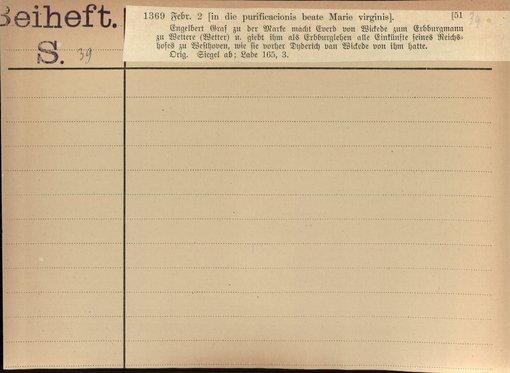 Beiheft.
S. 39
1369 Febr. 2 [in die purificacionis beate Marie virginis]. [51
Engelbert Graf zu der Marke macht Everd von Wickede zum Erbburgmann
zu Wettere (Wetter) u. giebt ihm als Erbburglehen alle Einkünfte seines Reichs-
hofes zu Westhoven, wie sie vorher Dyderich van Wickede von ihm hatte.
Orig. Siegel ab; Lade 165, 3.